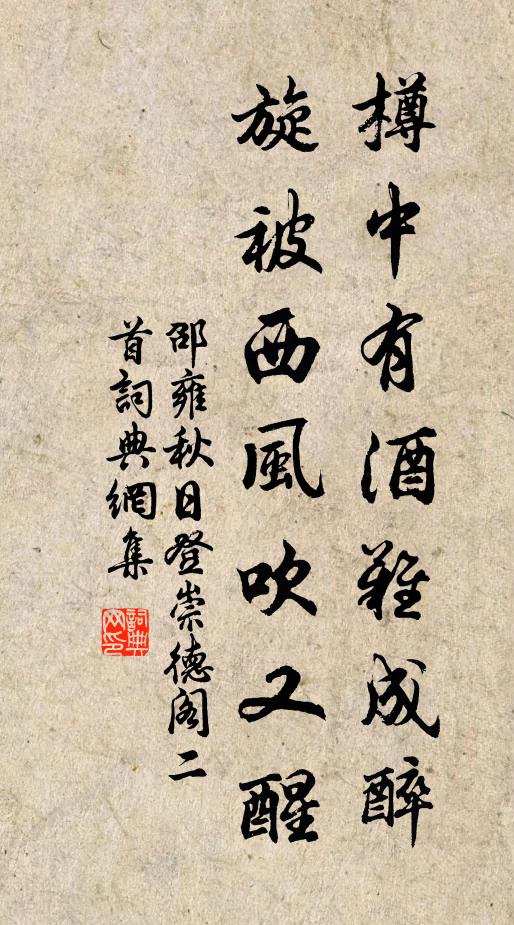 樽中有酒難成醉
旋被西風吹又醒
邵雍秋日登崇德阁二
首詞典網集
詞典网印